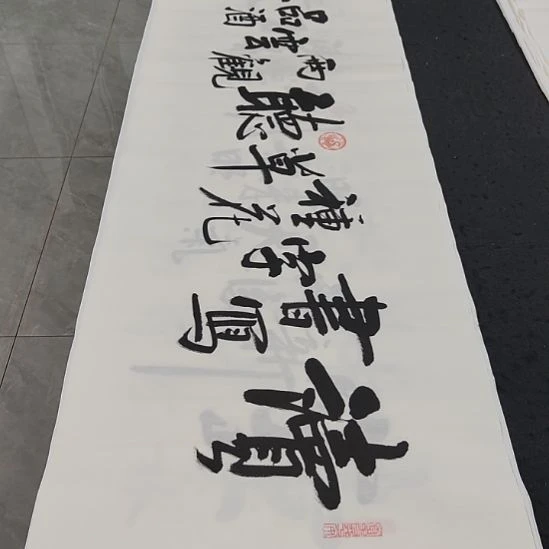 讀
書寫
字種
花草
聽
雨觀
雲品
酒